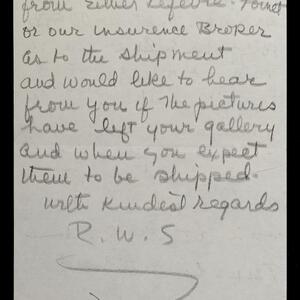 from either Lefevre - Foinet
or our insurence Broker
as to the shipment
and would like to hear
from you if the pictures
have left your gallery
and when you expect
them to be shipped.
with kindest regards
R.W.S